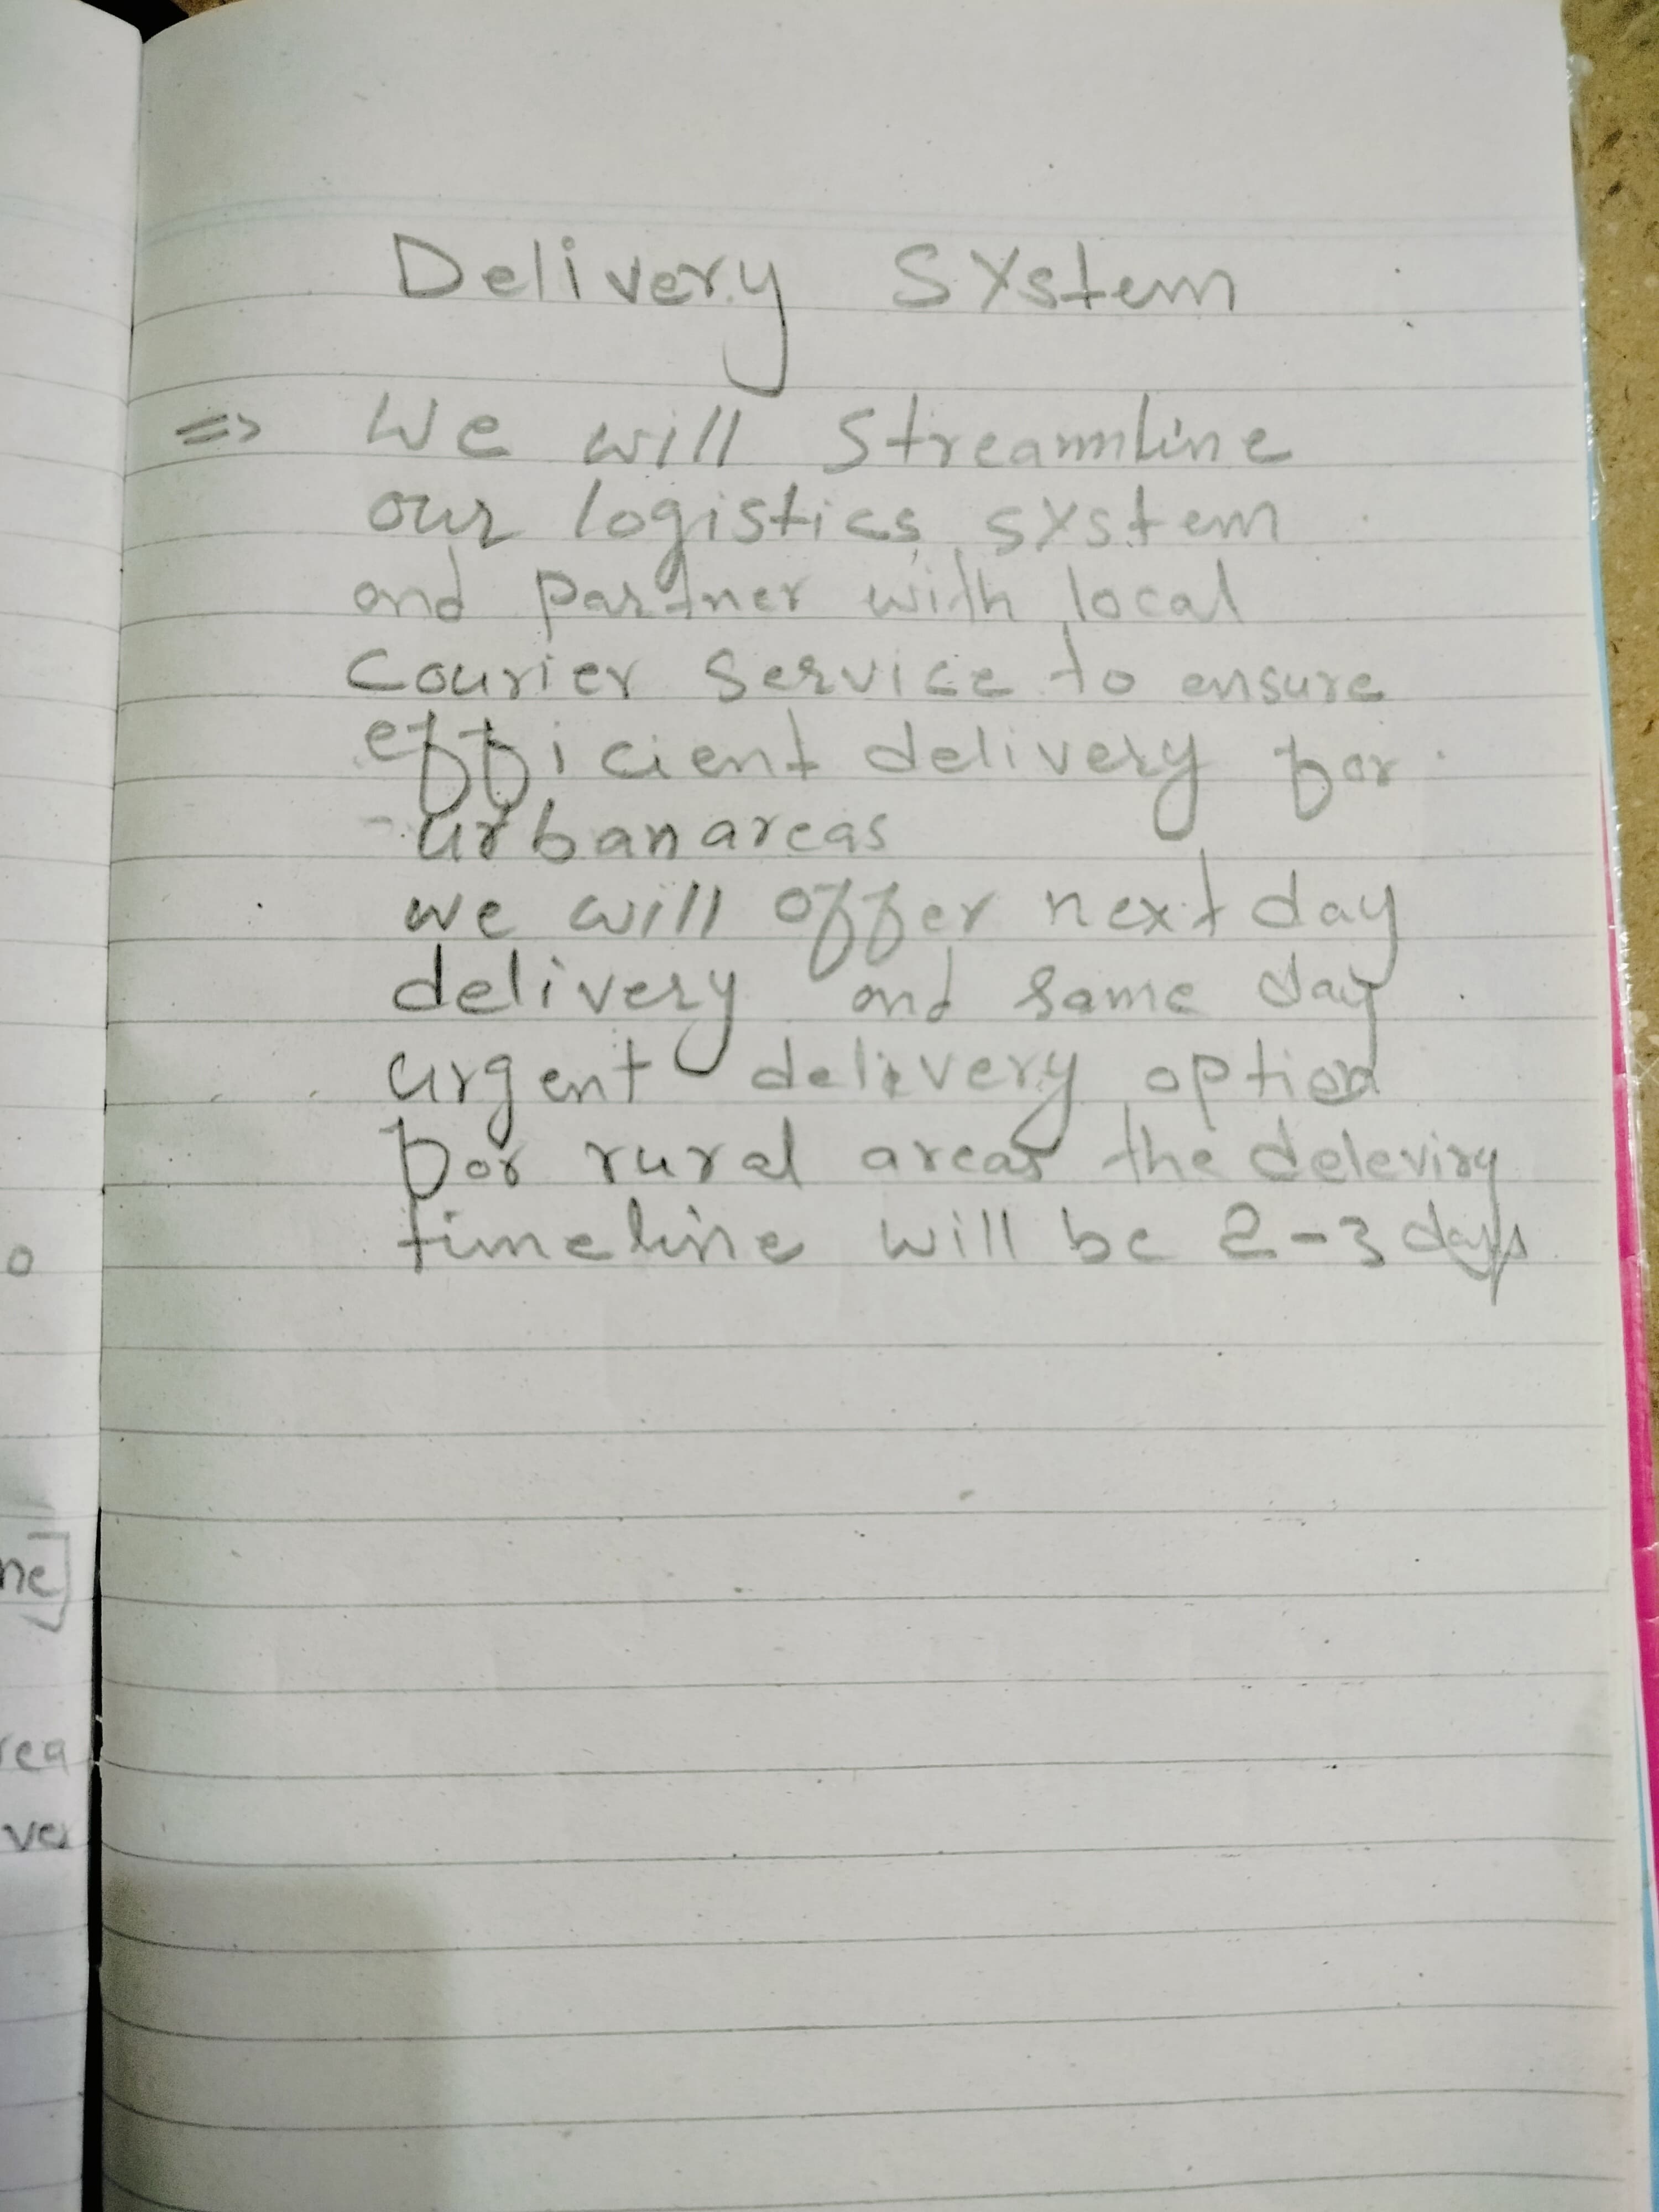 Delivery System
=> We will Streammline
our logistics system
and partner with local
Courier Service to ensure
efficient delivery for
urban areas
we will offer next day
delivery and same day
urgent delivery option
for rural areas the deleviry
timeline will be 2-3 days
o
ne
rea
ve